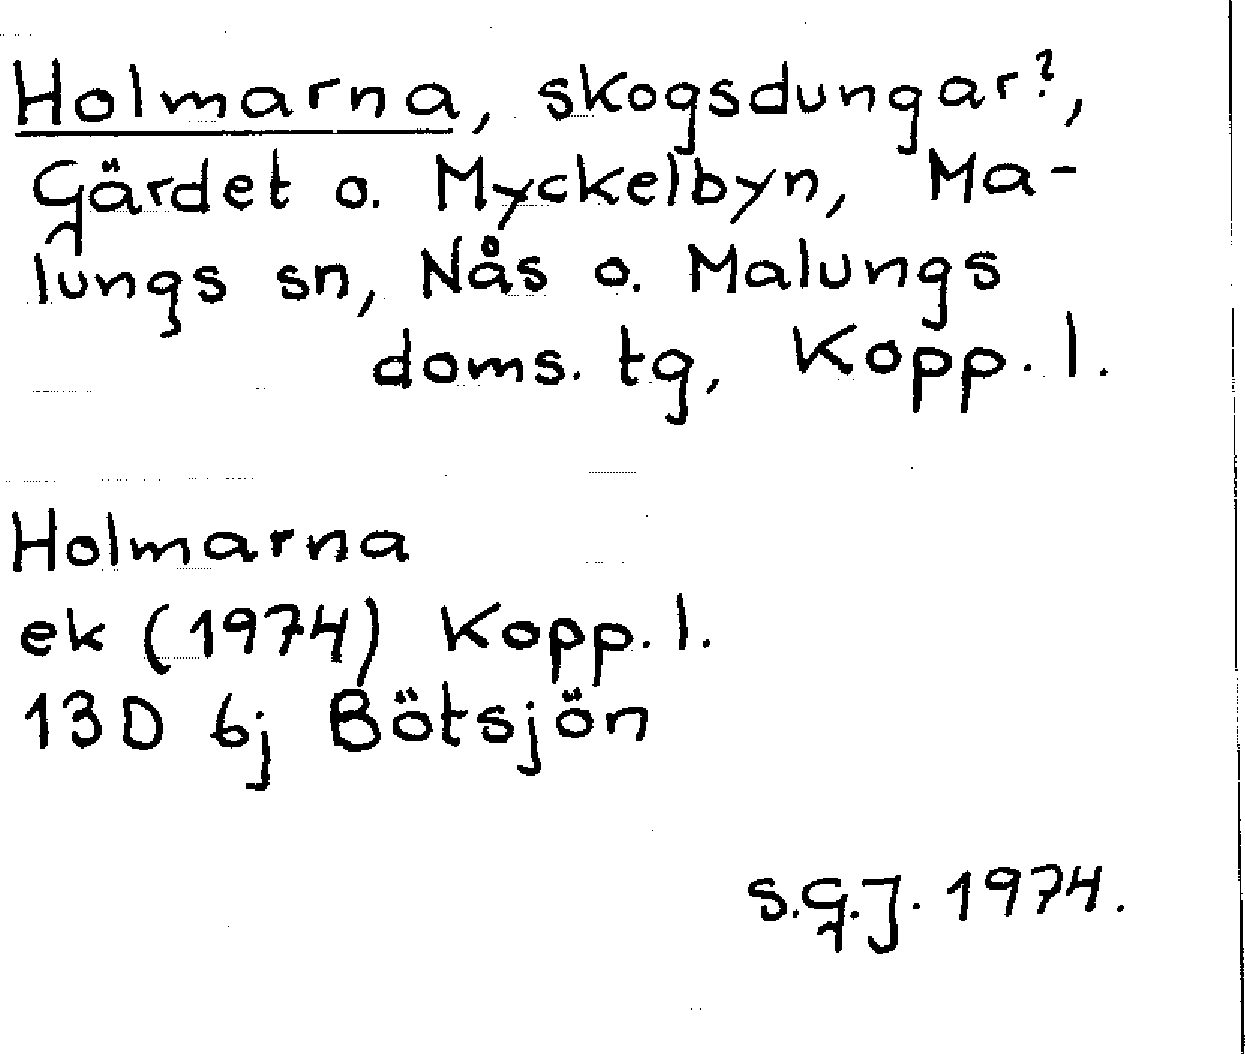 Holmarna, skogsdungar?,
Gärdet o. Myckelbyn, Ma-
lungs sn, Nås o. Malungs
doms. tg, Kopp. l.
Holmarna
ek (1974) Kopp. l.
13D 6j Bötsjön
S.G.J. 1974.